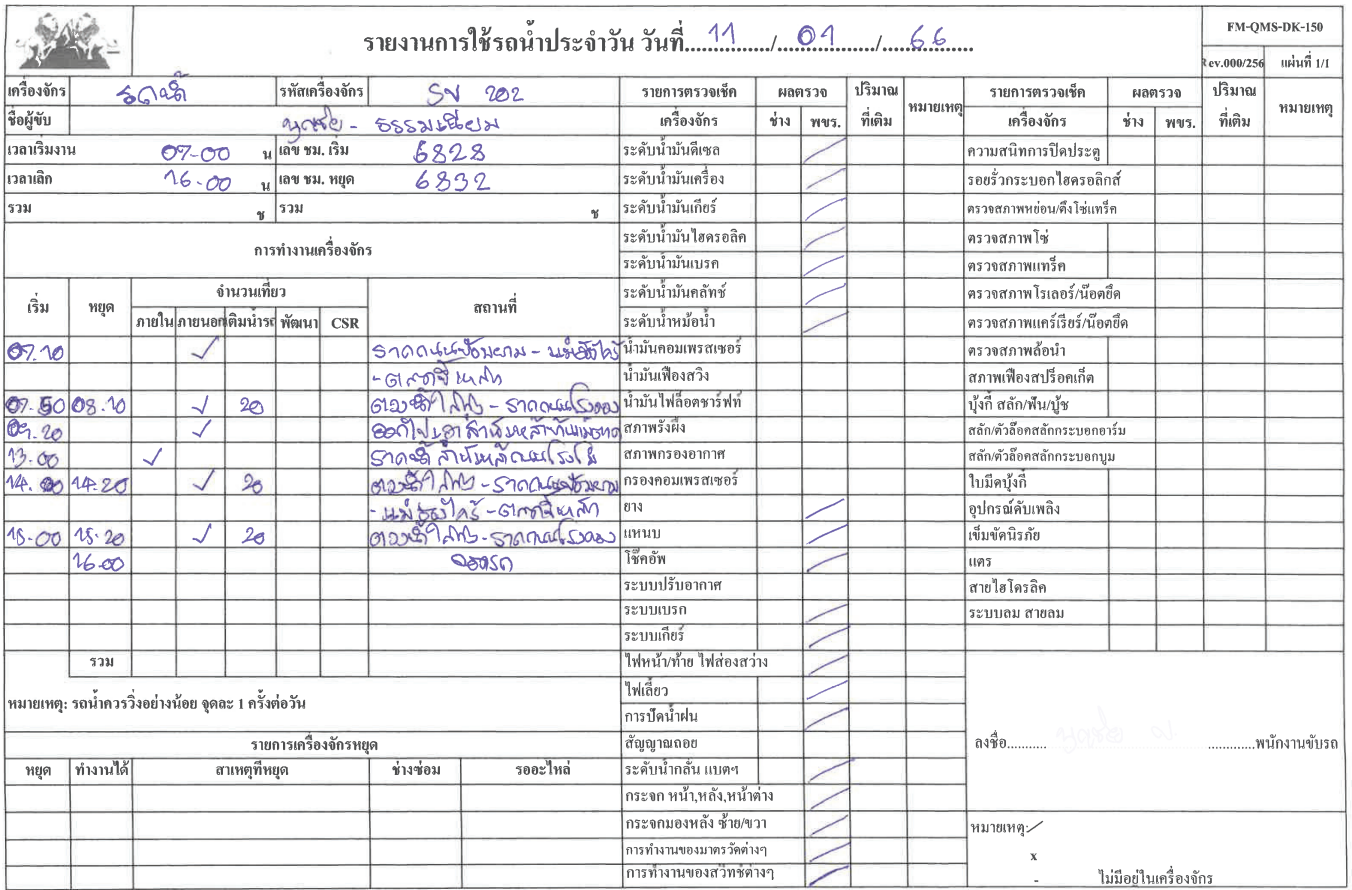 รายงานการใช้รถน้ำประจำวัน วันที่ 11 / 01 / 66
FM-QMS-DK-150
Rev.000/256 แผ่นที่ 1/1
เครื่องจักร รถน้ำ รหัสเครื่องจักร SN 202
ชื่อผู้ขับ - ธรรมเนียม
เวลาเริ่มงาน 07-00 น เลข ชม. เริ่ม 6828
เวลาเลิก 16.00 น เลข ชม. หยุด 6832
รวม ช รวม ช
การทำงานเครื่องจักร
เริ่ม หยุด จำนวนเที่ยว สถานที่
ภายใน ภายนอก เติมน้ำรถ พัฒนา CSR
07.10 ✓ ราดถนนป้อมยาม -
07.50 08.10 ✓ 20 - ราดถนน
09.20 ✓
13.00 ✓ ราดน้ำ
14.00 14.20 ✓ 20 - ราดถนนป้อมยาม
15.00 15.20 ✓ 20 - ราดถนน
16.00 จอดรถ
รวม
หมายเหตุ: รถน้ำควรวิ่งอย่างน้อย จุดละ 1 ครั้งต่อวัน
รายการเครื่องจักรหยุด
หยุด ทำงานได้ สาเหตุที่หยุด ช่างซ่อม รออะไหล่
รายการตรวจเช็ค ผลตรวจ ปริมาณ หมายเหตุ
เครื่องจักร ช่าง พขร. ที่เติม
ระดับน้ำมันดีเซล /
ระดับน้ำมันเครื่อง /
ระดับน้ำมันเกียร์ /
ระดับน้ำมันไฮดรอลิค /
ระดับน้ำมันเบรค /
ระดับน้ำมันคลัทช์ /
ระดับน้ำหม้อน้ำ /
น้ำมันคอมเพรสเซอร์
น้ำมันเฟืองสวิง
น้ำมันไฟล็อตชาร์ฟท์
สภาพรังผึ้ง
สภาพกรองอากาศ
กรองคอมเพรสเซอร์
ยาง /
แหนบ /
โช๊คอัพ /
ระบบปรับอากาศ
ระบบเบรก /
ระบบเกียร์ /
ไฟหน้า/ท้าย ไฟส่องสว่าง /
ไฟเลี้ยว /
การปัดน้ำฝน /
สัญญาณถอย
ระดับน้ำกลั่น แบตฯ /
กระจก หน้า,หลัง,หน้าต่าง /
กระจกมองหลัง ซ้าย/ขวา /
การทำงานของมาตรวัดต่างๆ /
การทำงานของสวิทช์ต่างๆ /
รายการตรวจเช็ค ผลตรวจ ปริมาณ หมายเหตุ
เครื่องจักร ช่าง พขร. ที่เติม
ความสนิทการปิดประตู
รอยรั่วกระบอกไฮดรอลิกส์
ตรวจสภาพหย่อน/ตึงโซ่แทร็ค
ตรวจสภาพโซ่
ตรวจสภาพแทร็ค
ตรวจสภาพโรเลอร์/น๊อตยึด
ตรวจสภาพแคร์เรียร์/น๊อตยึด
ตรวจสภาพล้อนำ
สภาพเฟืองสปร็อคเก็ต
บุ้งกี๋ สลัก/ฟัน/บู้ช
สลัก/ตัวล๊อคสลักกระบอกอาร์ม
สลัก/ตัวล๊อคสลักกระบอกบูม
ใบมีดบุ้งกี๋
อุปกรณ์ดับเพลิง
เข็มขัดนิรภัย
แตร
สายไฮโดรลิค
ระบบลม สายลม
ลงชื่อ..........พนักงานขับรถ
หมายเหตุ: /
x
- ไม่มีอยู่ในเครื่องจักร